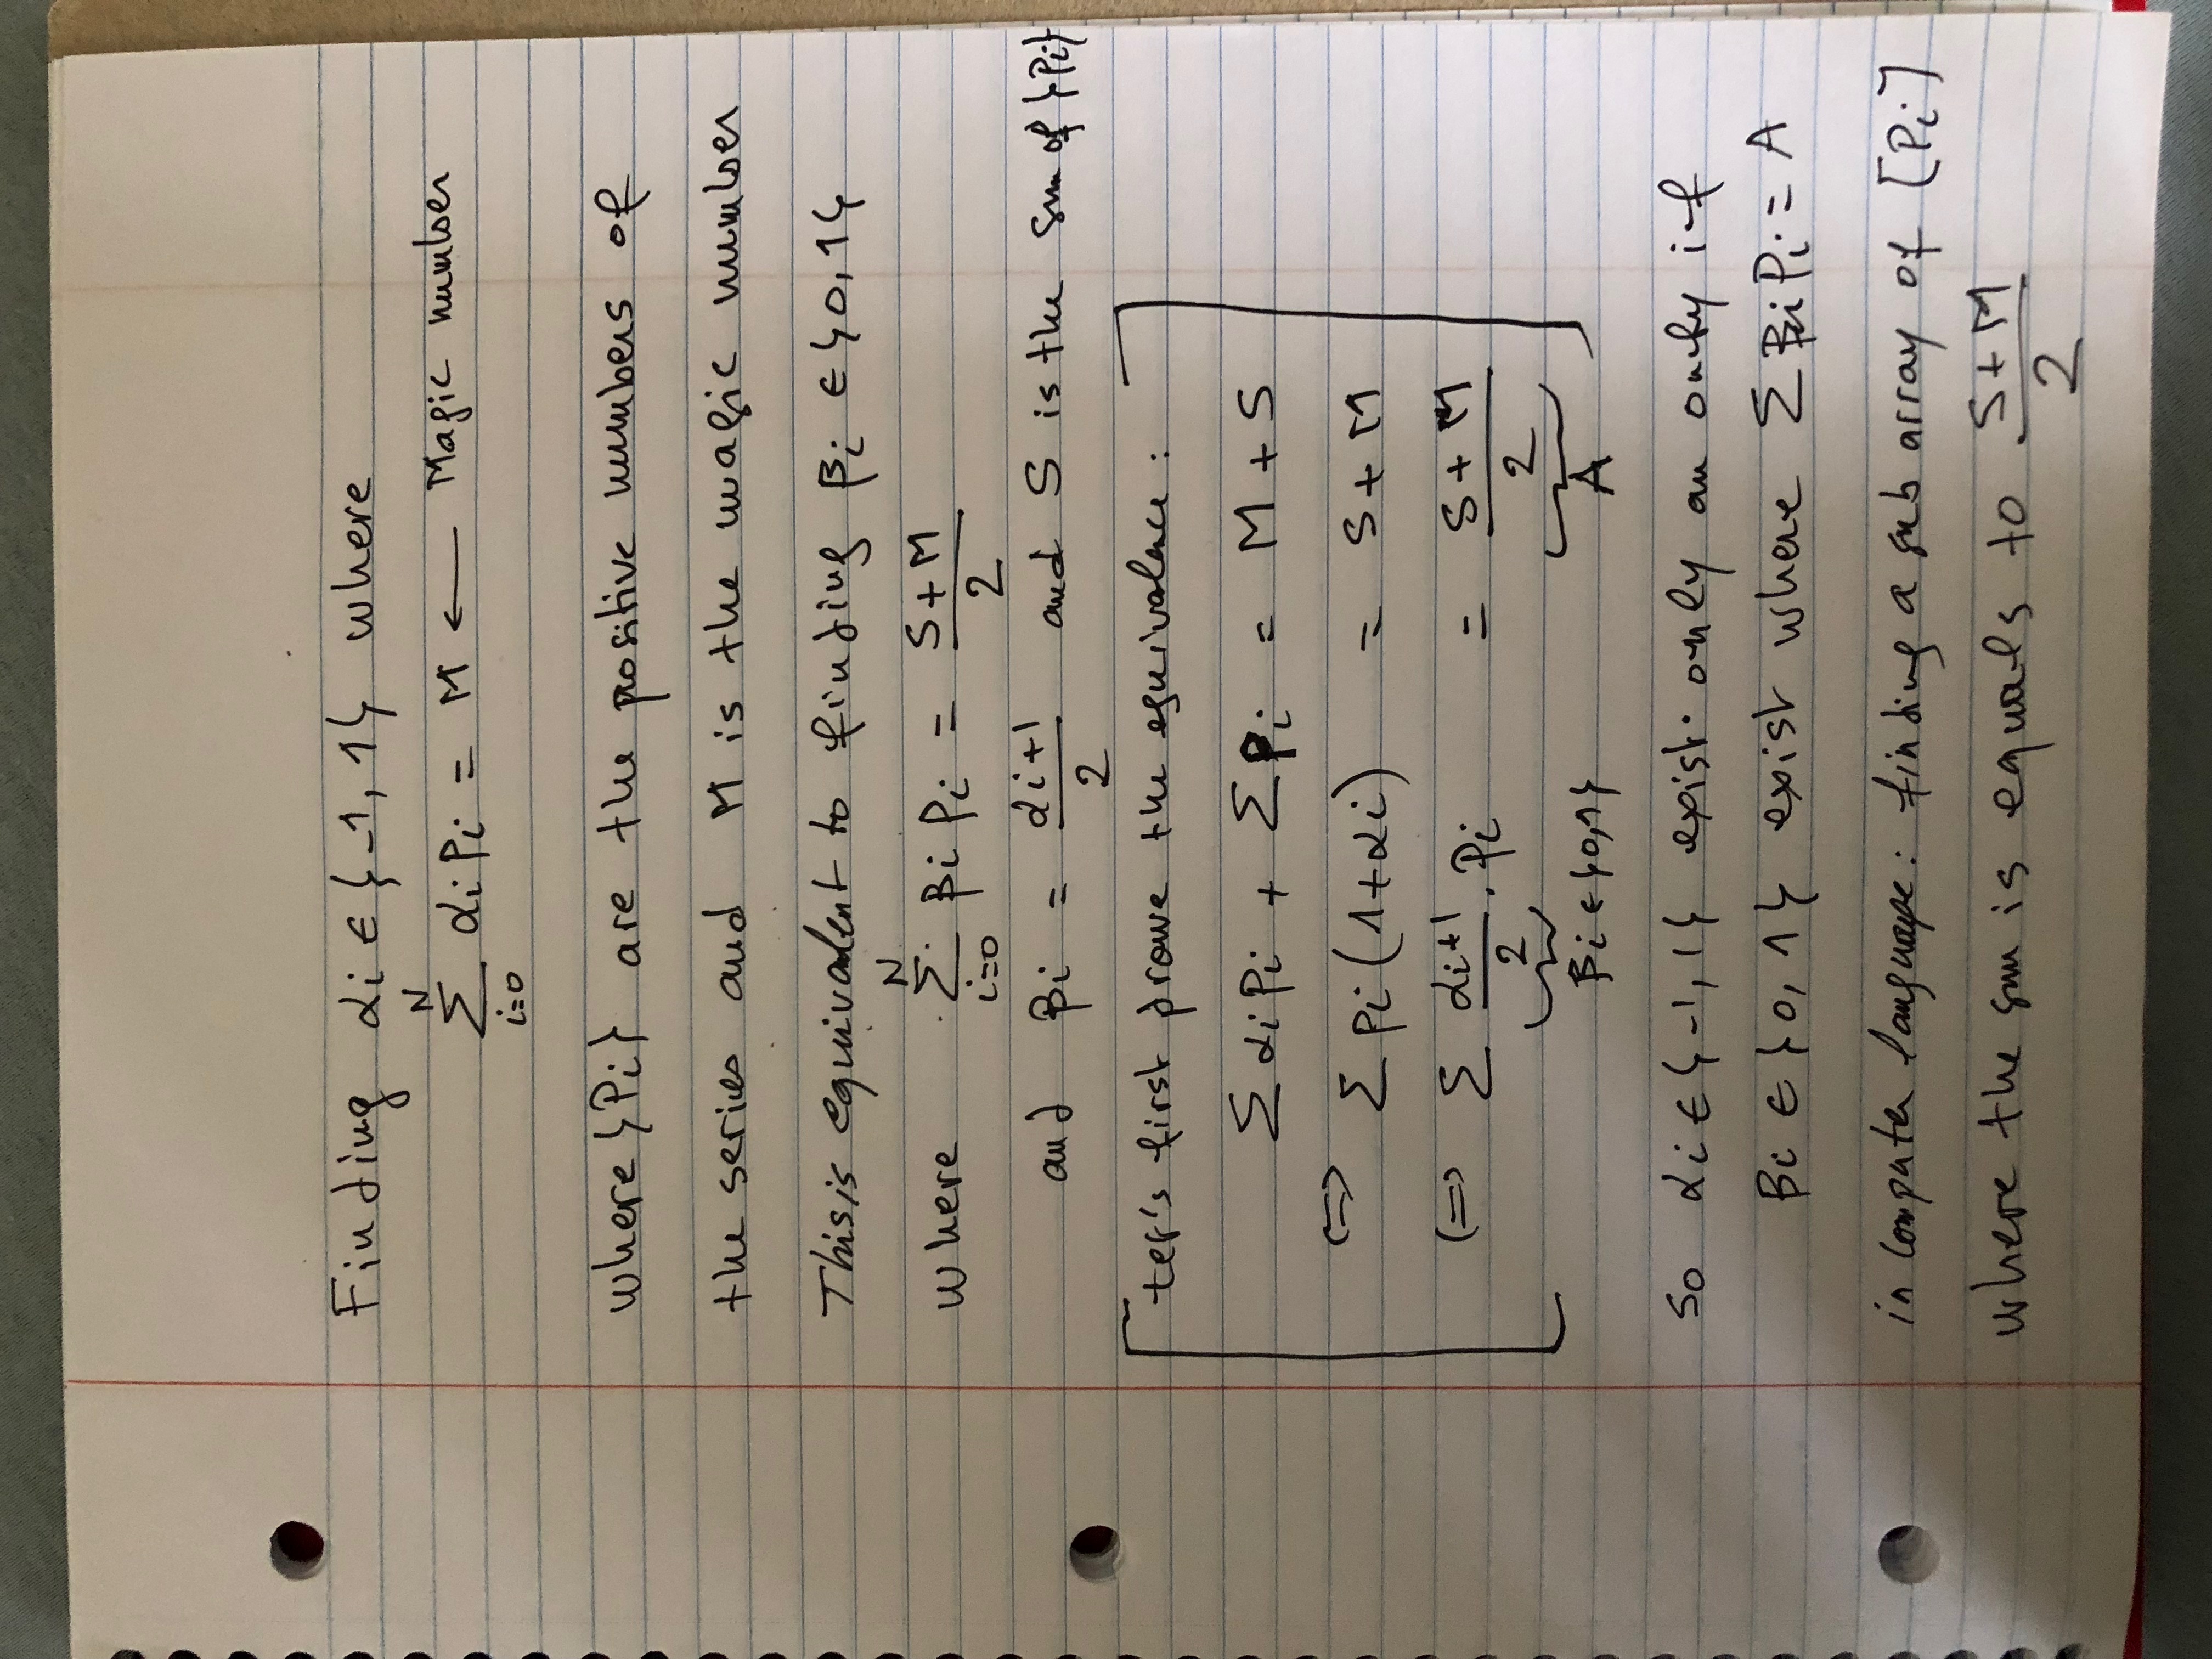 Finding αi ∈ {-1, 1} where
N
∑ αi Pi = M ← Magic number
i=0
where {Pi} are the positive numbers of
the series and M is the magic number
This is equivalent to finding βi ∈ {0, 1}
N
where ∑ βi Pi = S+M
i=0 2
and βi = αi+1 and S is the sum of {Pi}
2
Let's first prove the equivalence :
∑ αi Pi + ∑ Pi = M + S
<=> ∑ Pi (1+αi) = S + M
<=> ∑ αi+1 . Pi = S + M
2 2
βi ∈ {0,1} A
So αi ∈ {-1, 1} exist only an only if
βi ∈ {0, 1} exist where ∑ βi Pi = A
in computer language : finding a sub array of [Pi]
where the sum is equals to S+M
2